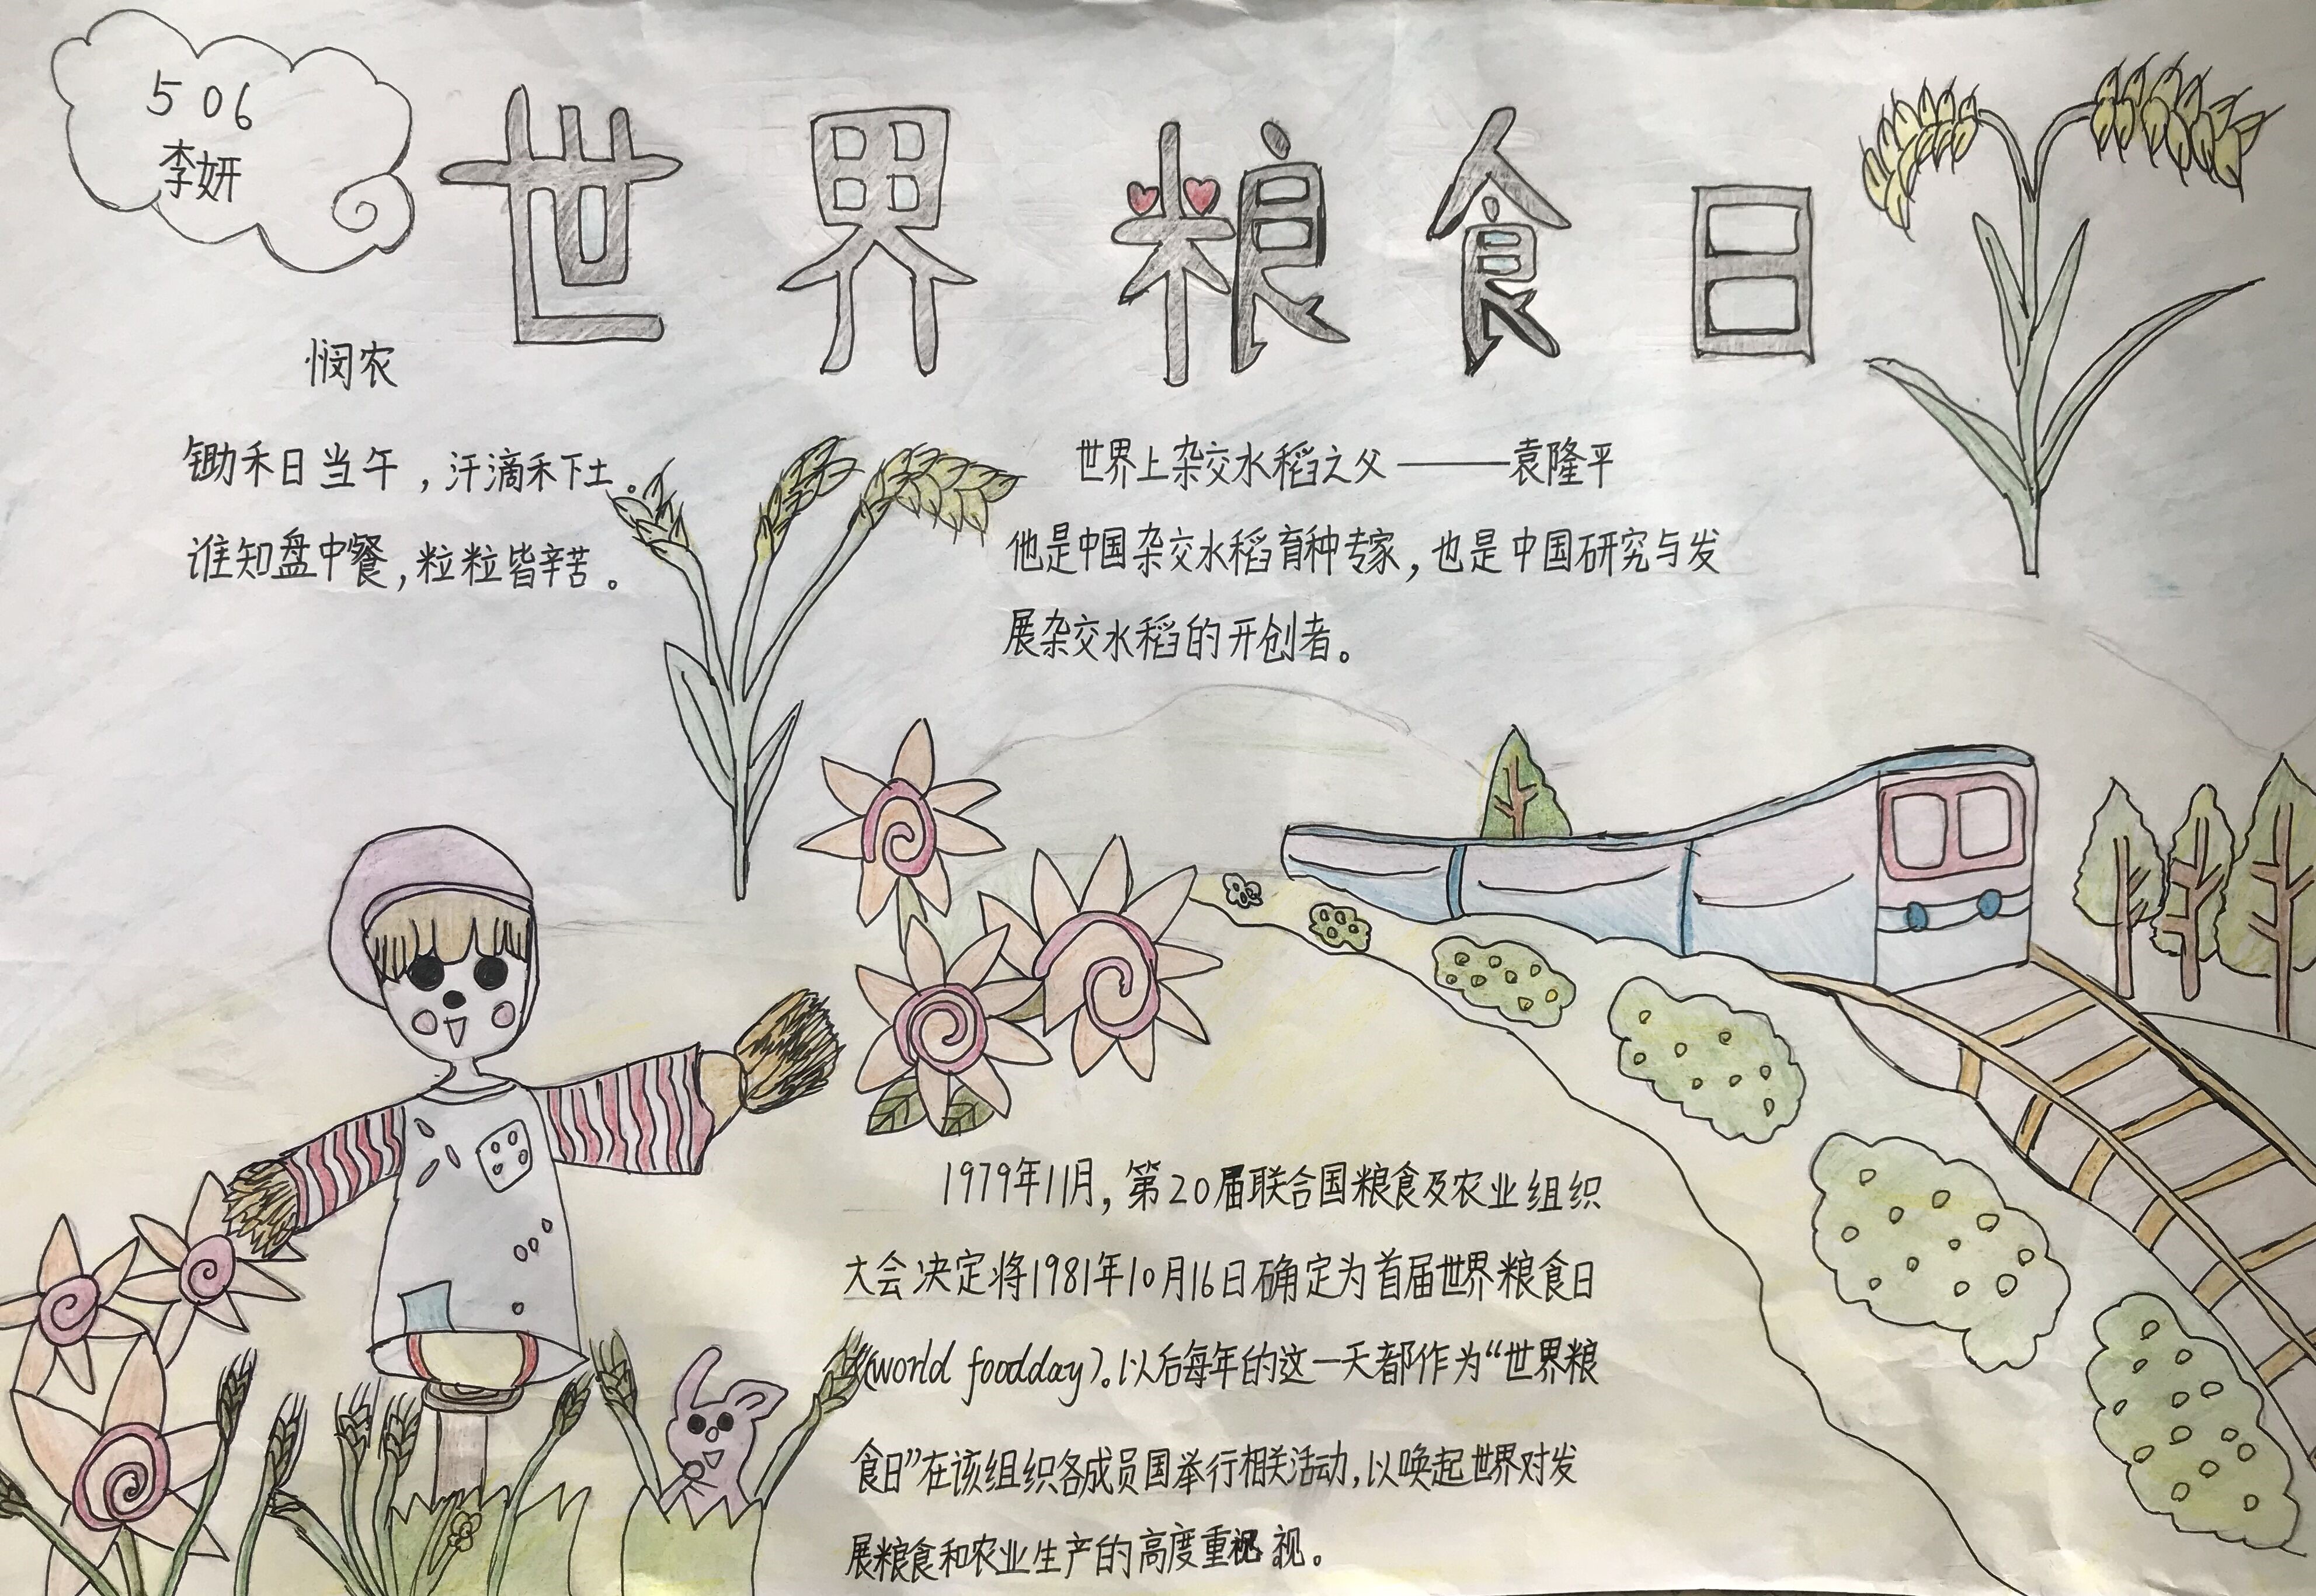 506
李妍
世界粮食日
悯农
锄禾日当午，汗滴禾下土。
谁知盘中餐，粒粒皆辛苦。
世界上杂交水稻之父——袁隆平
他是中国杂交水稻育种专家，也是中国研究与发
展杂交水稻的开创者。
1979年11月，第20届联合国粮食及农业组织
大会决定将1981年10月16日确定为首届世界粮食日
(world foodday)。以后每年的这一天都作为“世界粮
食日”在该组织各成员国举行相关活动，以唤起世界对发
展粮食和农业生产的高度重视。